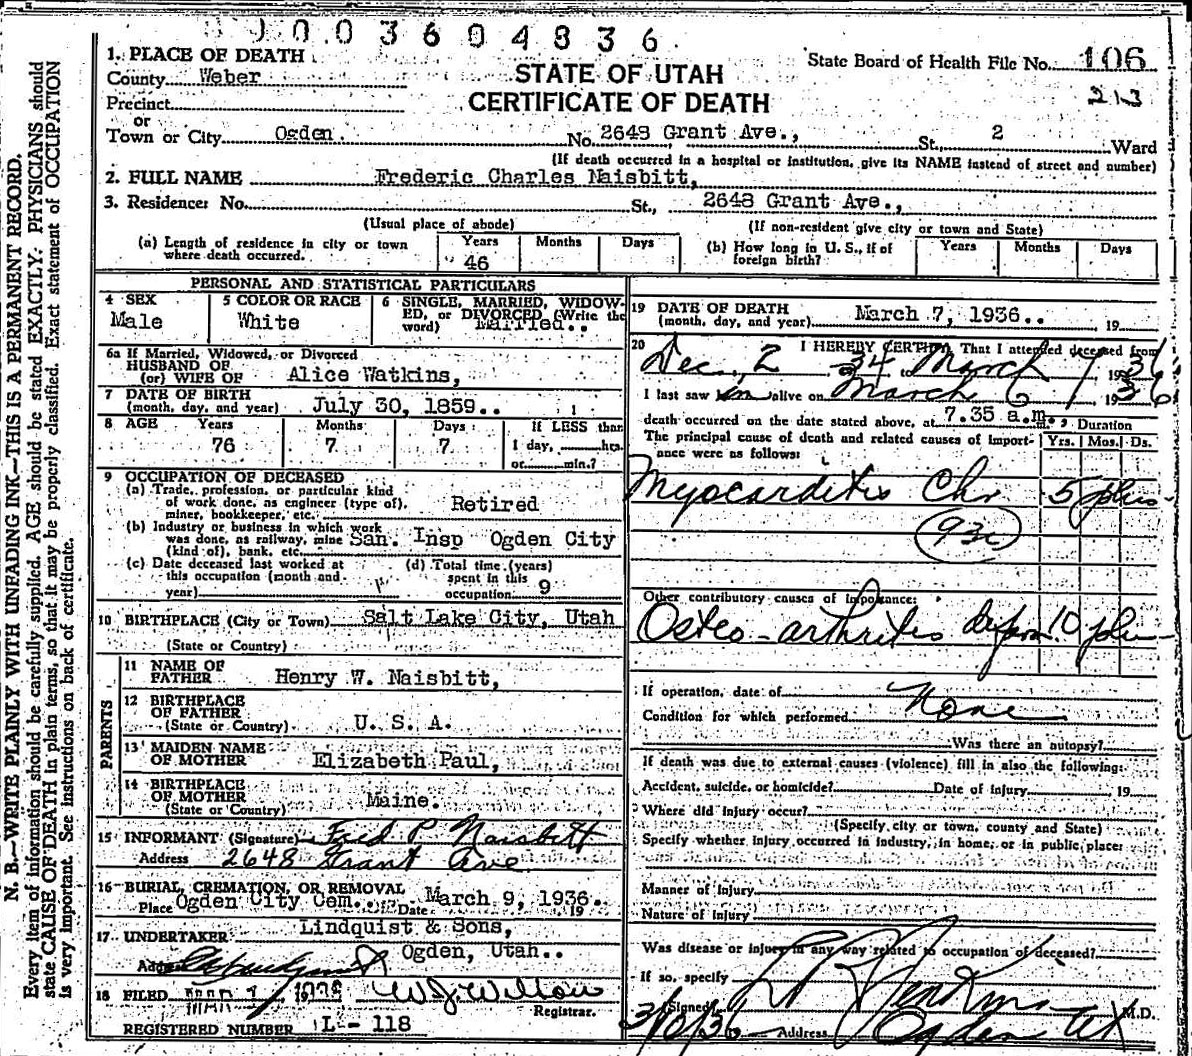 9 0 0 3 6 0 4 8 3 6
1. PLACE OF DEATH
County Weber
STATE OF UTAH
CERTIFICATE OF DEATH
State Board of Health File No. 106
213
Precinct
or
Town or City Ogden. No. 2648 Grant Ave., St., 2 Ward
(If death occurred in a hospital or institution, give its NAME instead of street and number)
2. FULL NAME Frederic Charles Naisbitt,
3. Residence: No. St., 2648 Grant Ave.,
(Usual place of abode) (If non-resident give city or town and State)
(a) Length of residence in city or town where death occurred. Years 46 Months Days
(b) How long in U. S., if of foreign birth? Years Months Days
PERSONAL AND STATISTICAL PARTICULARS
4 SEX Male
5 COLOR OR RACE White
6 SINGLE, MARRIED, WIDOWED, OR DIVORCED (Write the word) Married..
6a If Married, Widowed, or Divorced
HUSBAND OF
(or) WIFE OF Alice Watkins,
7 DATE OF BIRTH
(month, day, and year) July 30, 1859..
8 AGE Years 76 Months 7 Days 7
If LESS than
1 day, hrs.
or min.?
9 OCCUPATION OF DECEASED
(a) Trade, profession, or particular kind
of work done, as engineer (type of), Retired
miner, bookkeeper, etc.
(b) Industry or business in which work
was done, as railway, mine San. Insp Ogden City
(kind of), bank, etc.
(c) Date deceased last worked at
this occupation (month and
year)
(d) Total time (years)
spent in this
occupation 9
10 BIRTHPLACE (City or Town) Salt Lake City, Utah
(State or Country)
PARENTS
11 NAME OF
FATHER Henry W. Naisbitt,
12 BIRTHPLACE
OF FATHER
(State or Country) U. S. A.
13 MAIDEN NAME
OF MOTHER Elizabeth Paul,
14 BIRTHPLACE
OF MOTHER Maine.
(State or Country)
15 INFORMANT (Signature) Fred P Naisbitt
Address 2648 Grant Ave
16 BURIAL, CREMATION, OR REMOVAL
Place Ogden City Cem. Date March 9, 1936. 19
17 UNDERTAKER Lindquist & Sons,
Address Ogden, Utah..
18 FILED 19 Registrar.
REGISTERED NUMBER L - 118
19 DATE OF DEATH
(month, day, and year) March 7, 1936.. 19
20 I HEREBY CERTIFY, That I attended deceased from
Dec. 2 34 to March 7 1936
I last saw him alive on March 6, 1936
death occurred on the date stated above, at 7.35 a.m.,
The principal cause of death and related causes of importance were as follows:
Duration
Yrs. Mos. Ds.
Myocarditis Chr 5 plus
93c
Other contributory causes of importance:
Osteo-arthritis deform 10 plus
If operation, date of None
Condition for which performed
Was there an autopsy?
If death was due to external causes (violence) fill in also the following:
Accident, suicide, or homicide? Date of injury 19
Where did injury occur?
(Specify city or town, county and State)
Specify whether injury occurred in industry, in home, or in public place:
Manner of Injury
Nature of Injury
Was disease or injury in any way related to occupation of deceased?
If so, specify
(Signed) M.D.
3/10/36 Address Ogden Ut
N. B.—WRITE PLAINLY WITH UNFADING INK—THIS IS A PERMANENT RECORD.
Every item of information should be carefully supplied. AGE should be stated EXACTLY. PHYSICIANS should
state CAUSE OF DEATH in plain terms, so that it may be properly classified. Exact statement of OCCUPATION
is very important. See instructions on back of certificate.